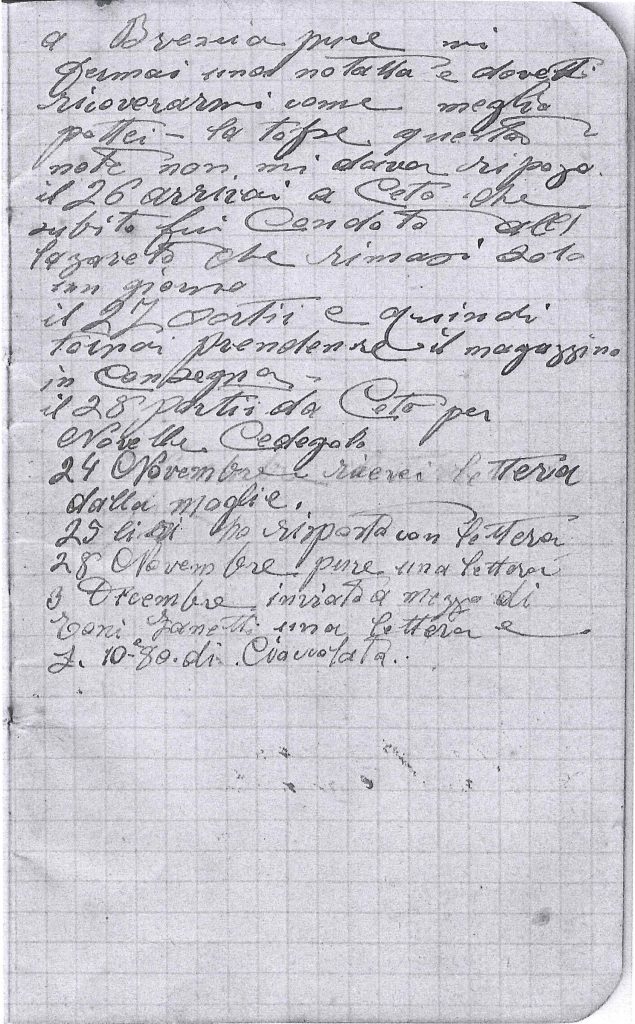 a Brescia pure mi
fermai una nottatta e dovetti
ricoverarmi come meglio
pottei - la tosse questa
note non mi dava ripozo.
il 26 arrivai a Ceto che
subito fui Condoto all
lazareto che rimasi solo
un giorno
il 27 sortii e quindi
tornai prendere il magazzino
in Consegna -
il 28 partii da Ceto per
Novelle Cedegolo
24 Novembre ricevei lettera
dalla moglie.
25 li ho risposta con lettera
28 Novembre pure una lettera
3 Decembre inviato a mezzo di
Toni Zanetti una lettera e
10 di Cioccolata.